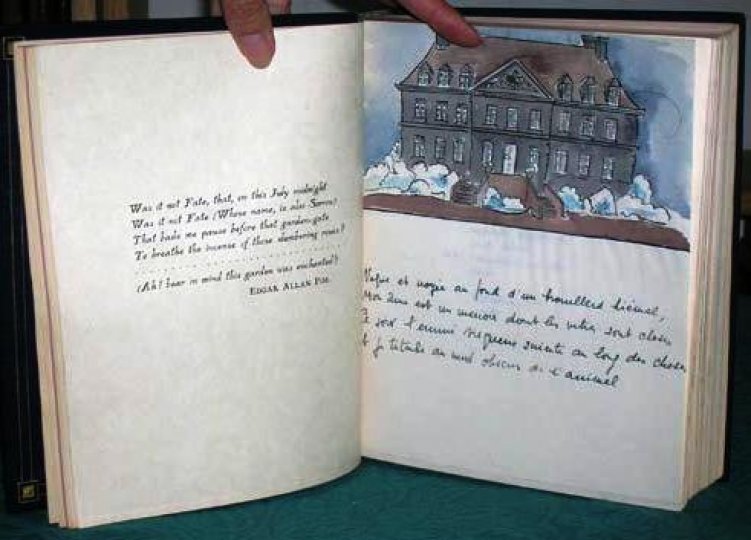 Was it not Fate, that, on this July midnight
Was it not Fate (Whose name, is also Sorrow)
That bade me pause before that garden-gate
To breathe the incense of those slumbering roses?
. . . . . . . . . . . . . . . . . . . . . . . . . . .
(Ah! bear in mind this garden was enchanted!)
EDGAR ALLAN POE
Vague et noyée au fond d'un brouillard hiémal,
Mon âme est un manoir dont les vitres sont closes
Ce soir l'ennui visqueux suinte au long des choses
Et je titube au mur obscur de l'animal